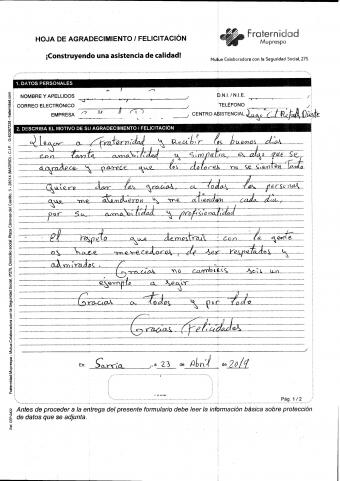 HOJA DE AGRADECIMIENTO / FELICITACIÓN
¡Construyendo una asistencia de calidad!
Fraternidad
Muprespa
Mutua Colaboradora con la Seguridad Social, 275
1. DATOS PERSONALES
NOMBRE Y APELLIDOS
D.N.I. / N.I.E.
CORREO ELECTRÓNICO
TELÉFONO
EMPRESA
CENTRO ASISTENCIAL Lugo C/ Rafael
2. DESCRIBA EL MOTIVO DE SU AGRADECIMIENTO / FELICITACIÓN
Llegar a fraternidad y Recibir los buenos días
con tanta amabilidad y simpatia, es algo que se
agradece y parece que los dolores no se sienten tanto
Quiero dar las gracias a todas las personas
que me atendieron y me atienden cada dia,
por su amabilidad y profisionalidad
El respeto que demostrais con la gente
os hace merecedores de ser respetados y
admirados. Gracias no cambieis sois un
ejemplo a segir
Gracias a todos y por todo
Gracias Felicidades
En Sarria, a 23 de Abril de 2019
Pág. 1 / 2
Antes de proceder a la entrega del presente formulario debe leer la información básica sobre protección
de datos que se adjunta.